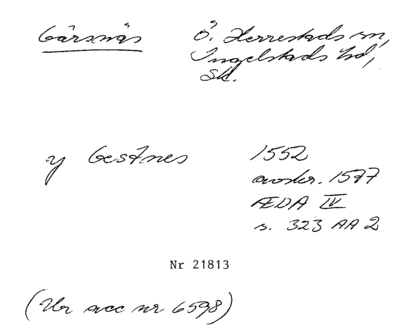 Gärsnäs Ö. Herrestads sn,
Ingelstads hd,
Sk.
y Gestnes 1552
avskr. 1577
ÆDA IV
s. 323 AA 2
Nr 21813
(Ur acc nr 6598)